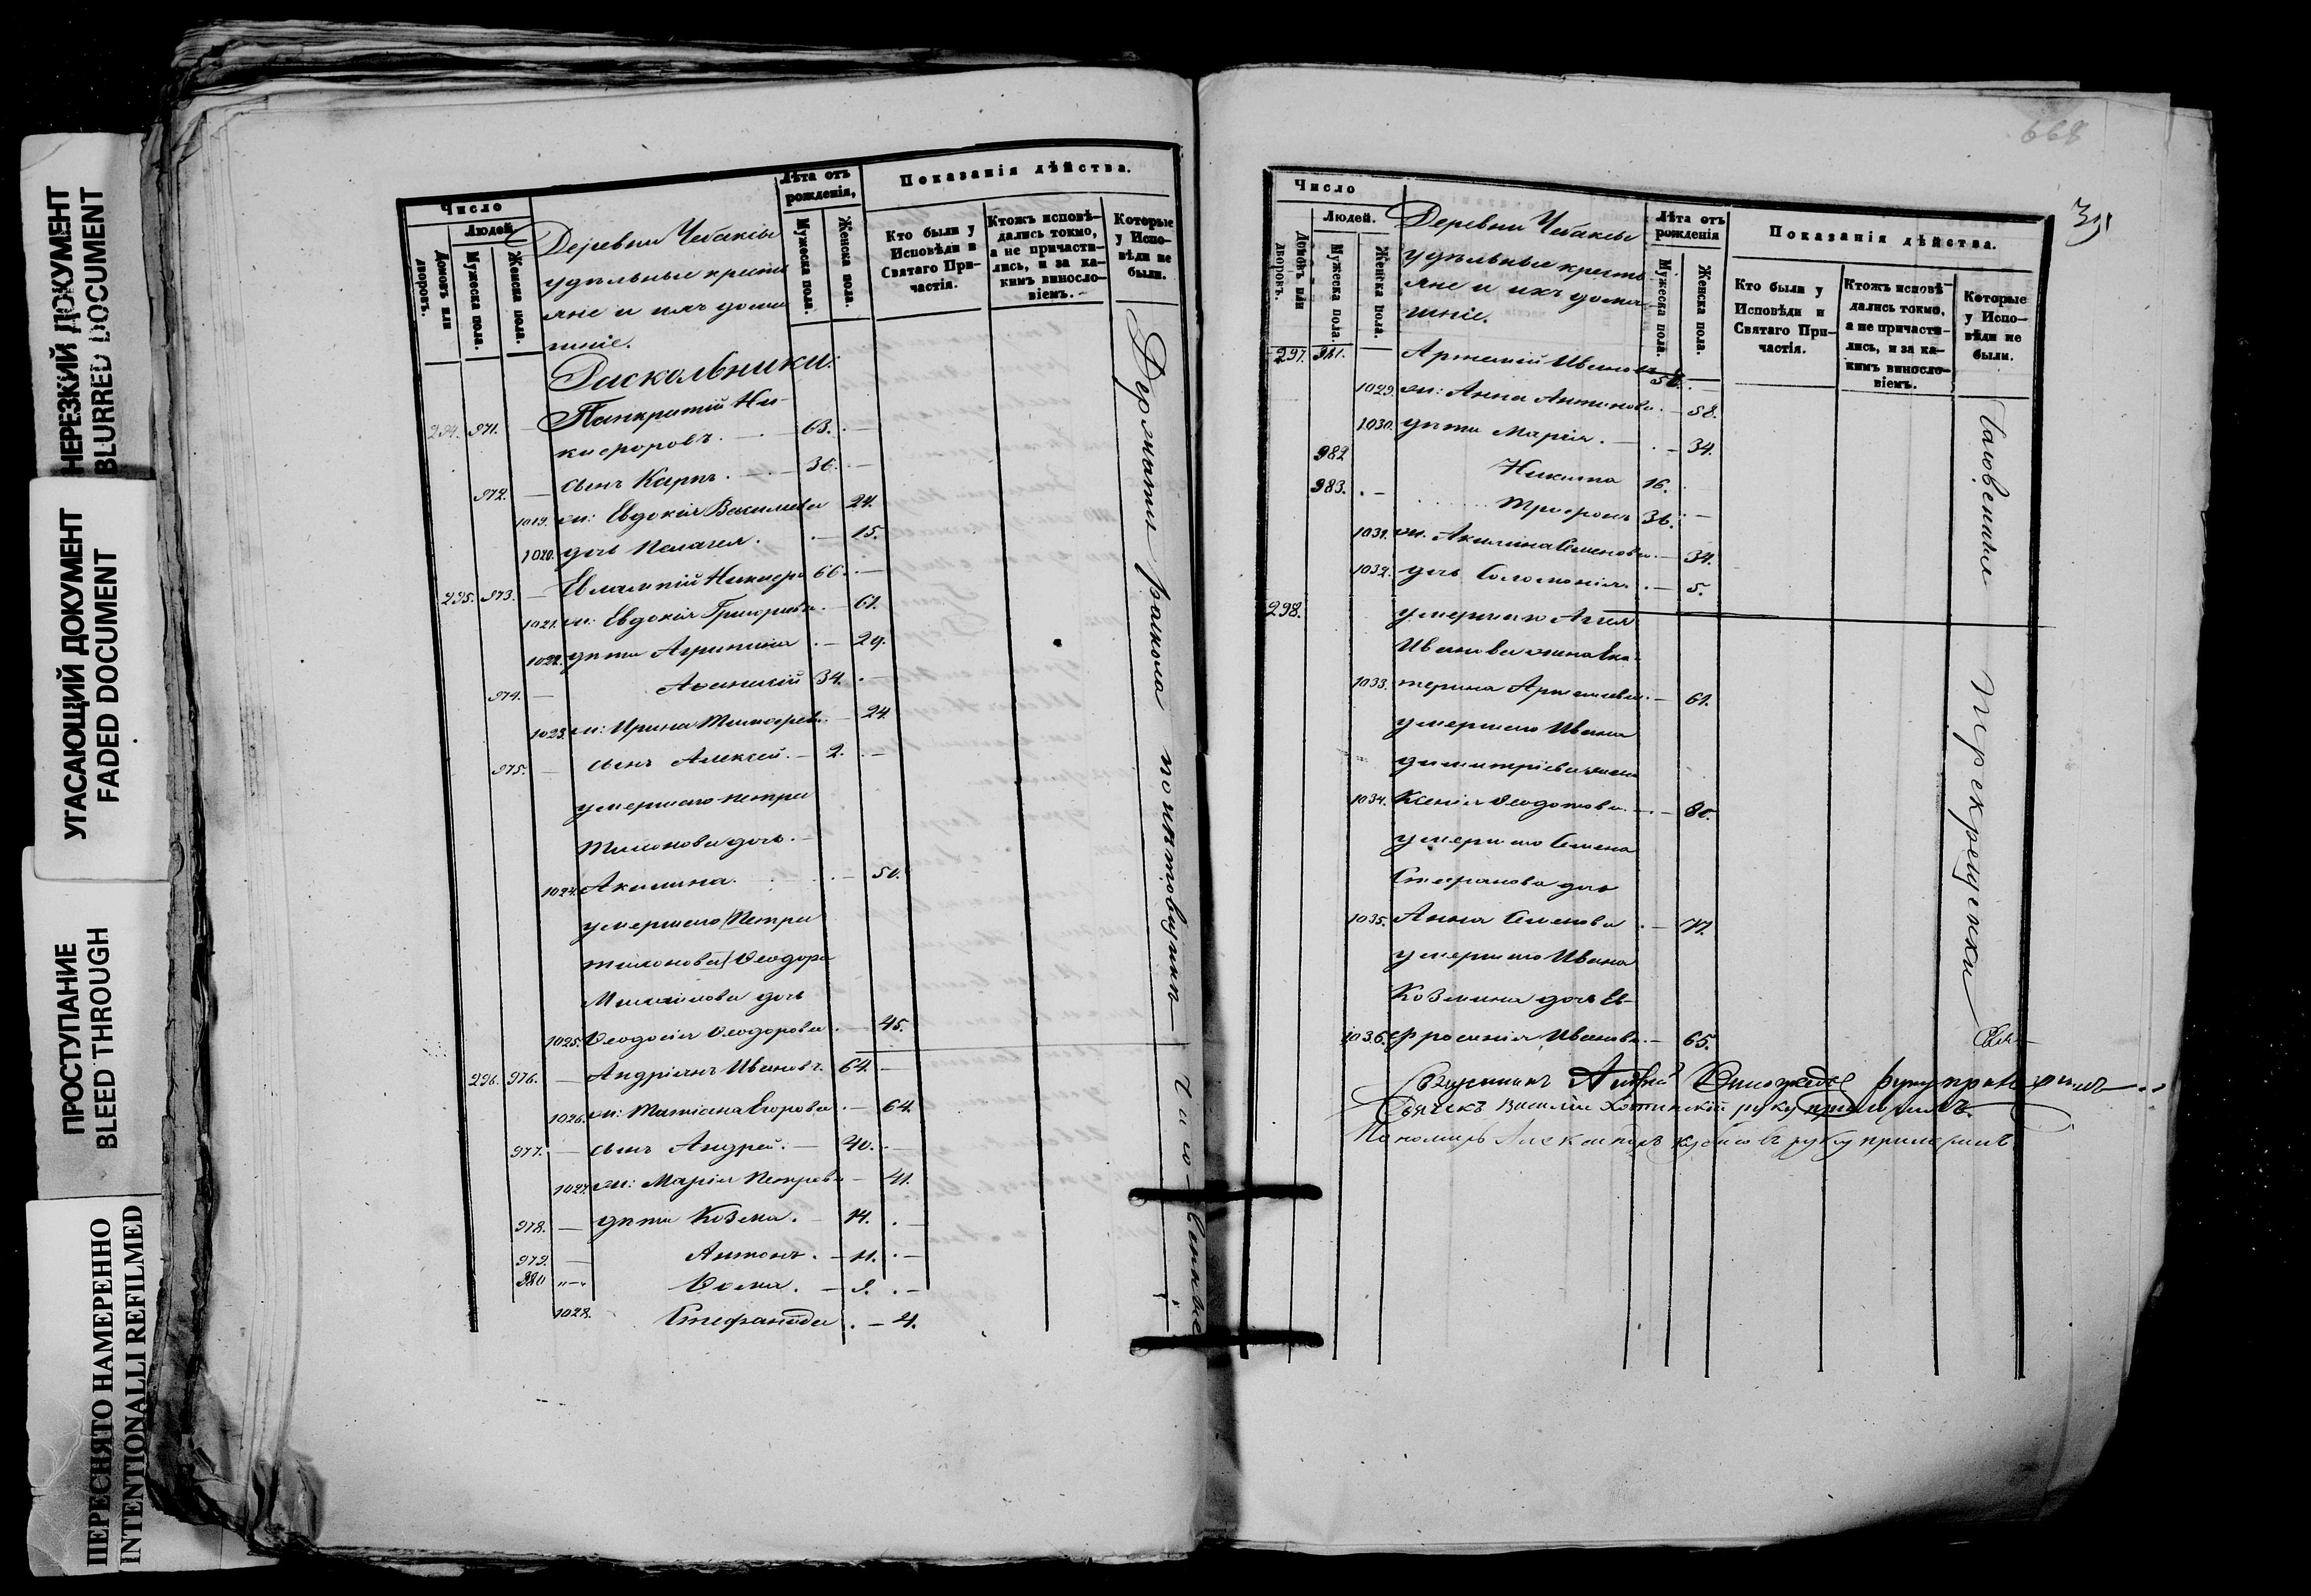 НЕРЕЗКИЙ ДОКУМЕНТ
BLURRED DOCUMENT
УГАСАЮЩИЙ ДОКУМЕНТ
FADED DOCUMENT
ПРОСТУПАНИЕ
BLEED THROUGH
ПЕРЕСНЯТО НАМЕРЕННО
INTENTIONALLI REFILMED
Число
Людей
Домовъ или дворовъ.
Мужеска пола.
Женска пола.
Деревни Чебаксы
удѣльные кресть
яне и ихъ дома
шніе.
Лѣта отъ рожденія,
Мужеска пола.
Женска пола.
Показанія дѣйства.
Кто были у Исповѣди и Святаго Причастія.
Ктожъ исповѣдались токмо, а не причастились, и за какимъ винословіемъ.
Которые у Исповѣди не были.
Раскольники:
294. 971. Панкратій Ни-
кифоровъ. 63.
972. сынъ Карпъ. 36.
1019. ж: Евдокія Васильева 24.
1020. дочь Пелагея. 15.
295. 973. Евлампій Никифоро 66.
1021. ж: Евдокія Григорьева 61.
1022. дѣти Агрипина 29.
974. Афанасій 34.
1023. ж: Ирина Тимофеева 24.
975. сынъ Алексей. 2.
умершаго Петра
Тимонова дочь.
1024. Акилина. 50.
умершаго Петра
Тимонова Ѳеодора
Михаилова дочь
1025. Ѳеодосія Ѳеодорова 45.
296. 976. Андріянъ Ивановъ. 64.
1026. ж: Татіана Егорова 64.
977. сынъ Андрей. 40.
1027. ж: Марія Петрова 41.
978. дѣти Козма. 14.
979. Антонъ. 11.
980 Ѳома. 9.
1028. Стефанида 4.
Держатъ раскола
668
Число
Людей.
Домовъ или дворовъ.
Мужеска пола.
Женска пола.
Деревни Чебаксы
удѣльные кресть
яне и ихъ дома
шніе.
Лѣта отъ рожденія
Мужеска пола.
Женска пола.
Показанія дѣйства.
Кто были у Исповѣди и Святаго Причастія.
Ктожъ исповѣдались токмо, а не причастились, и за какимъ винословіемъ.
Которые у Исповѣди не были.
297. 981. Артемій Ивановъ
1029. ж: Анна Антонова 58.
1030. дѣти Марія. 34.
982 Никита 16.
983. Трифонъ 36.
1031. ж. Акилина Семенова 34.
1032. дочь Соломонія. 5.
298. умершаго
Иванова жена Ека-
1033. терина Артемьева 61.
умершаго Ивана
Димитріева жена
1034. Ксенія Ѳеодотова 80.
умершаго Семена
Стефанова дочь
1035. Анна Семенова
умершаго Ивана
Козмина дочь Ев-
1036. фросинія Иванова 65.
Священникъ руку приложилъ
Дьячекъ Василій руку приложилъ.
Пономарь Александръ руку приложилъ